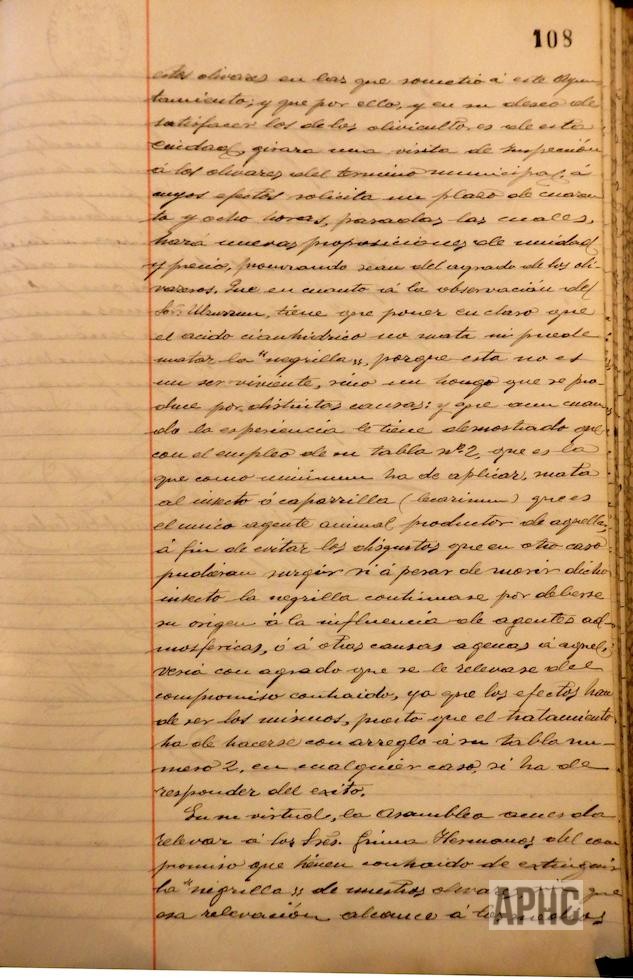 108
estos olivares en las que sometió á este Ayun
tamiento; y que por ello, y en su deseo de
satisfacer los de los olivicultores de esta
Ciudad, girara una visita de inspección
á los olivares del termino municipal, á
cuyos efectos solicita un plazo de cuaren
ta y ocho horas, pasadas las cuales,
hará nuevas proposiciones de unidad
y precio, procurando sean del agrado de los oli-
vareros. Que en cuanto á la observación del
Sr., tiene que poner en claro que
el acido cianhidrico no mata ni puede
matar la "negrilla", porque esta no es
un ser viviente, sino un hongo que se pro-
duce por distintas causas: y que aun cuan
do la experiencia le tiene demostrado que
con el empleo de su tabla nº 2, que es la
que como minimum ha de aplicar, mata
al insecto ó caparrilla (lecanium) que es
el unico agente animal productor de aquella,
á fin de evitar los disgustos que en otro caso
pudieran surgir si á pesar de morir dicho
insecto la negrilla continuase por deberse
su origen á la influencia de agentes ad
mosfericos, ó á otras causas agenas á aquel,
veria con agrado que se le relevase del
compromiso contraido, ya que los efectos han
de ser los mismos, puesto que el tratamiento
ha de hacerse con arreglo á su tabla nu-
mero 2, en cualquier caso, si ha de
responder del exito.
En su virtud, la Asamblea acuerda
relevar á los Srés. Grima Hermanos del com
promiso que tienen contraido de extinguir
la "negrilla" de nuestros olivares, sin que
esa relevación alcance á los medios
APHC